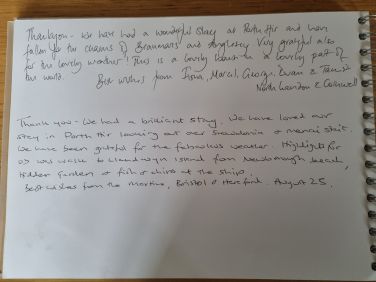 Thankyou - We have had a wonderful stay at Porth Hir and have
fallen for the charms of Beaumaris and Anglesey. Very grateful also
for the lovely weather! This is a lovely house in a lovely part of
the world.
Best wishes from Fiona, Marcel, George, Ewan &
North London & Cornwell
Thank you - We had a brilliant stay. We have loved our
stay in Porth Hir looking out over Snowdonia & menai strait.
We have been grateful for the fabulous weather. Highlights for
us was walk to Llanddwyn island from Newborough beach,
Hidden Garden & fish & chips at the ship.
best wishes from the Martins, Bristol & Hereford. August 25.